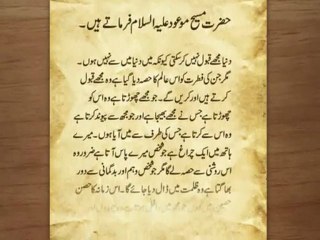 حضرت مسیح موعود علیہ السلام فرماتے ہیں۔
دنیا مجھے قبول نہیں کرسکتی کیونکہ میں دنیا میں سے نہیں ہوں۔
مگر جن کی فطرت کو اس عالم کا حصہ دیا گیا ہے وہ مجھے
قبول کرتے ہیں اور کریں گے۔ جو مجھے چھوڑتا ہے وہ اس کو
چھوڑتا ہے جس نے مجھے بھیجا ہے اور جو مجھ سے پیوند کرتا ہے
وہ اس سے کرتا ہے جس کی طرف سے میں آیا ہوں۔ میرے
ہاتھ میں ایک چراغ ہے جو شخص میرے پاس آتا ہے ضرور وہ
اس روشنی سے حصہ لے گا مگر جو شخص وہم اور بدگمانی سے دور
بھاگتا ہے وہ ظلمت میں ڈال دیا جائے گا۔ اس زمانہ کا حصن